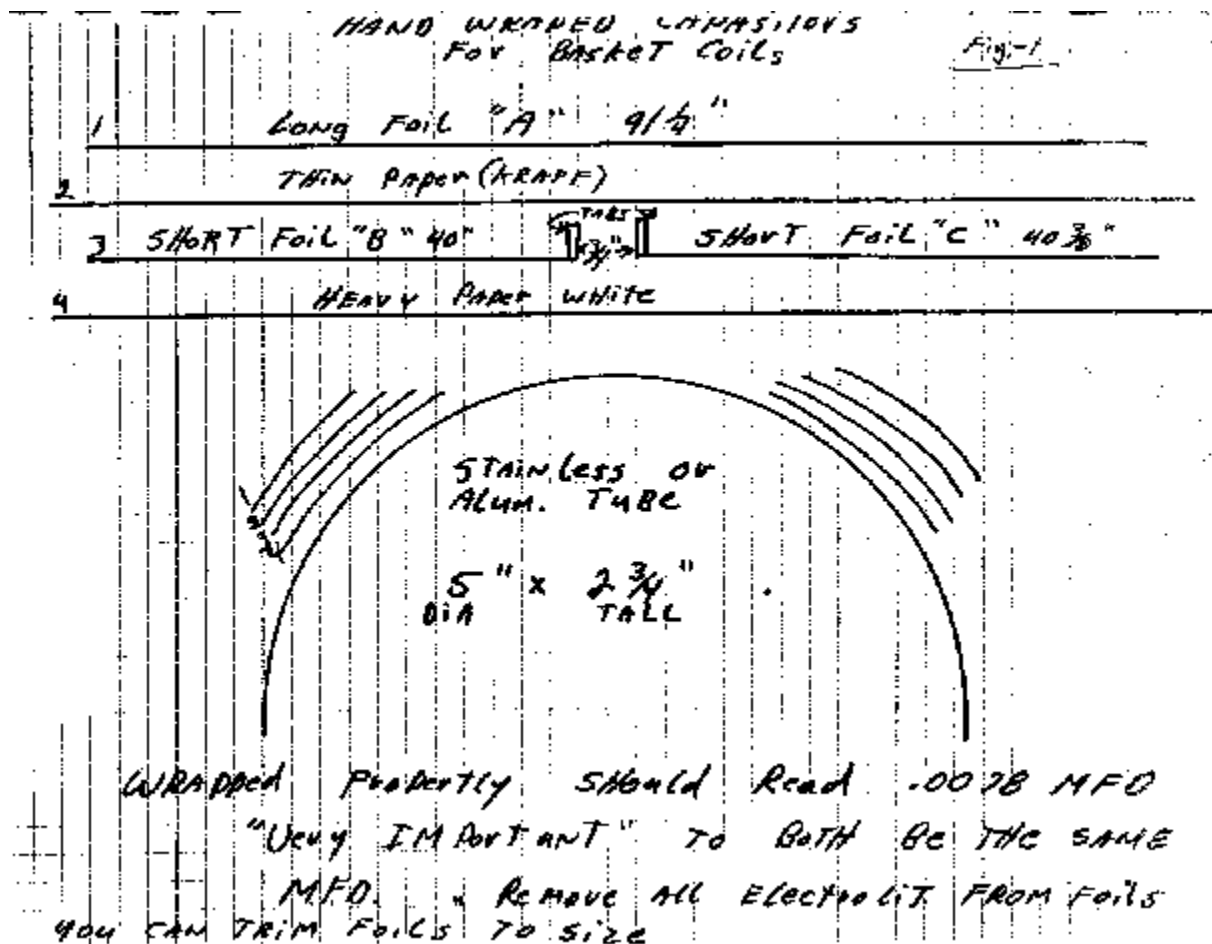 HAND WRAPED CAPASITORS
FOR BASKET COILS
Fig-1
1 LONG FOIL "A" 91/4"
2 THIN PAPER (KRAFF)
TABS
3 SHORT FOIL "B" 40" 3/4" SHORT FOIL "C" 40 3/8"
4 HEAVY PAPER WHITE
STAINLESS OR
ALUM. TUBE
5" x 2 3/4"
DIA TALL
WRAPPED PROPERTLY SHOULD READ .0078 MFD
"VERY IMPORTANT" TO BOTH BE THE SAME
MFD. REMOVE ALL ELECTROLIT FROM FOILS
YOU CAN TRIM FOILS TO SIZE